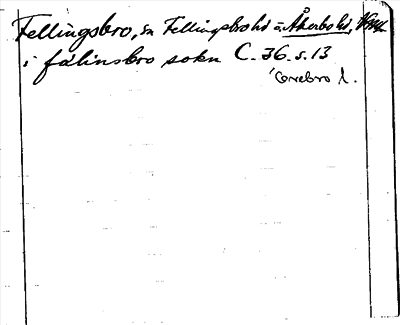 Fellingsbro, sn Fellingsbro hd o. Åkerbo hd, Vml
i fälinsbro sokn C. 36. s. 13
Örebro l.